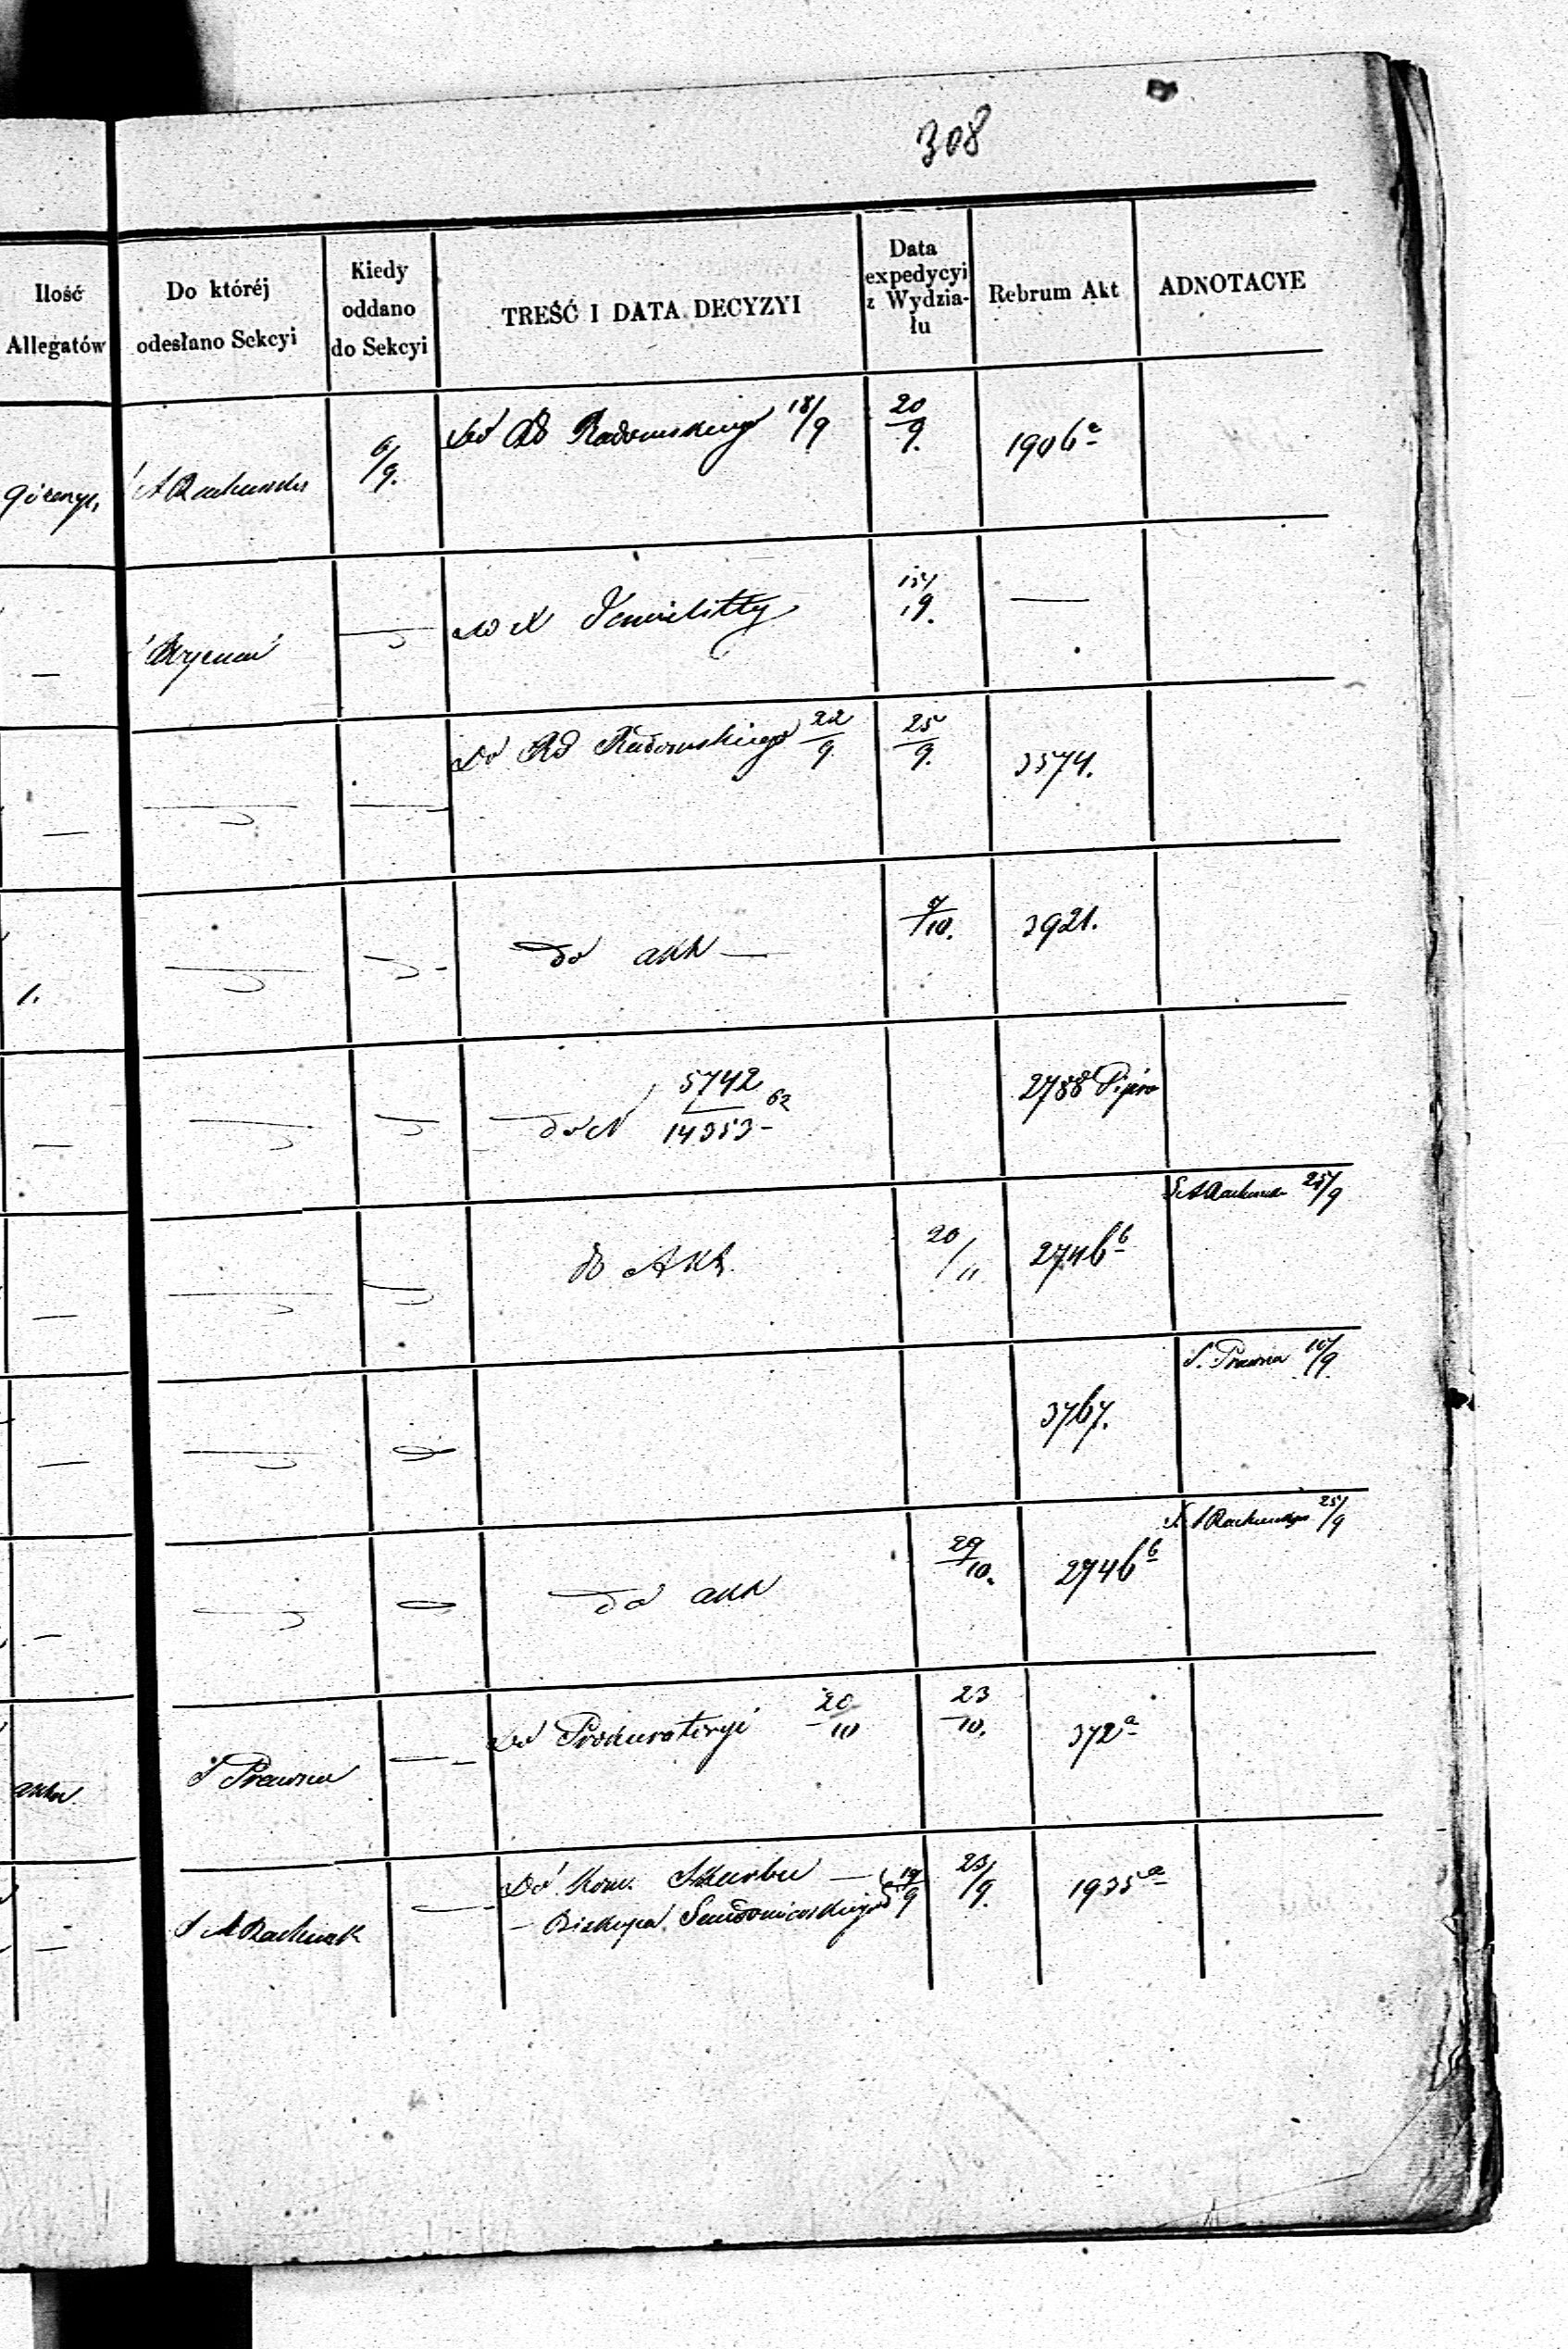 308
Ilość
Allegatów
Do któréj
odesłano Sekcyi
Kiedy
oddano
do Sekcyi
TREŚĆ I DATA DECYZYI
Data
expedycyi
z Wydzia-
łu
Rebrum Akt
ADNOTACYE
6/9.
Do Radomskiego 18/9
20/9.
1906 a
—
19.
—
Do Rd Radomskiego 22/9
25/9.
3574.
—
1.
do akt —
/10.
3921.
—
do N 5742/14353 62
2788
—
do Akt.
20/11
2746 b
25/9
—
3767.
S. Prawna 10/9
—
do akt
29/10.
2746 b
25/9
akta
S Prawna
Do Prokuratoryi 20/10
23/10.
372 a
—
S A Rachunk
Do Kom. Skarbu —
— Biskupa Sandomierskiego 19/9
23/9.
1935 a